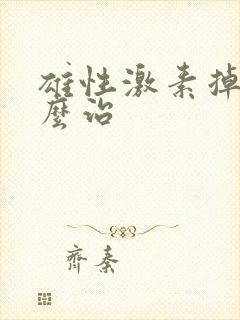 雄性激素掉
麼治
齊秦